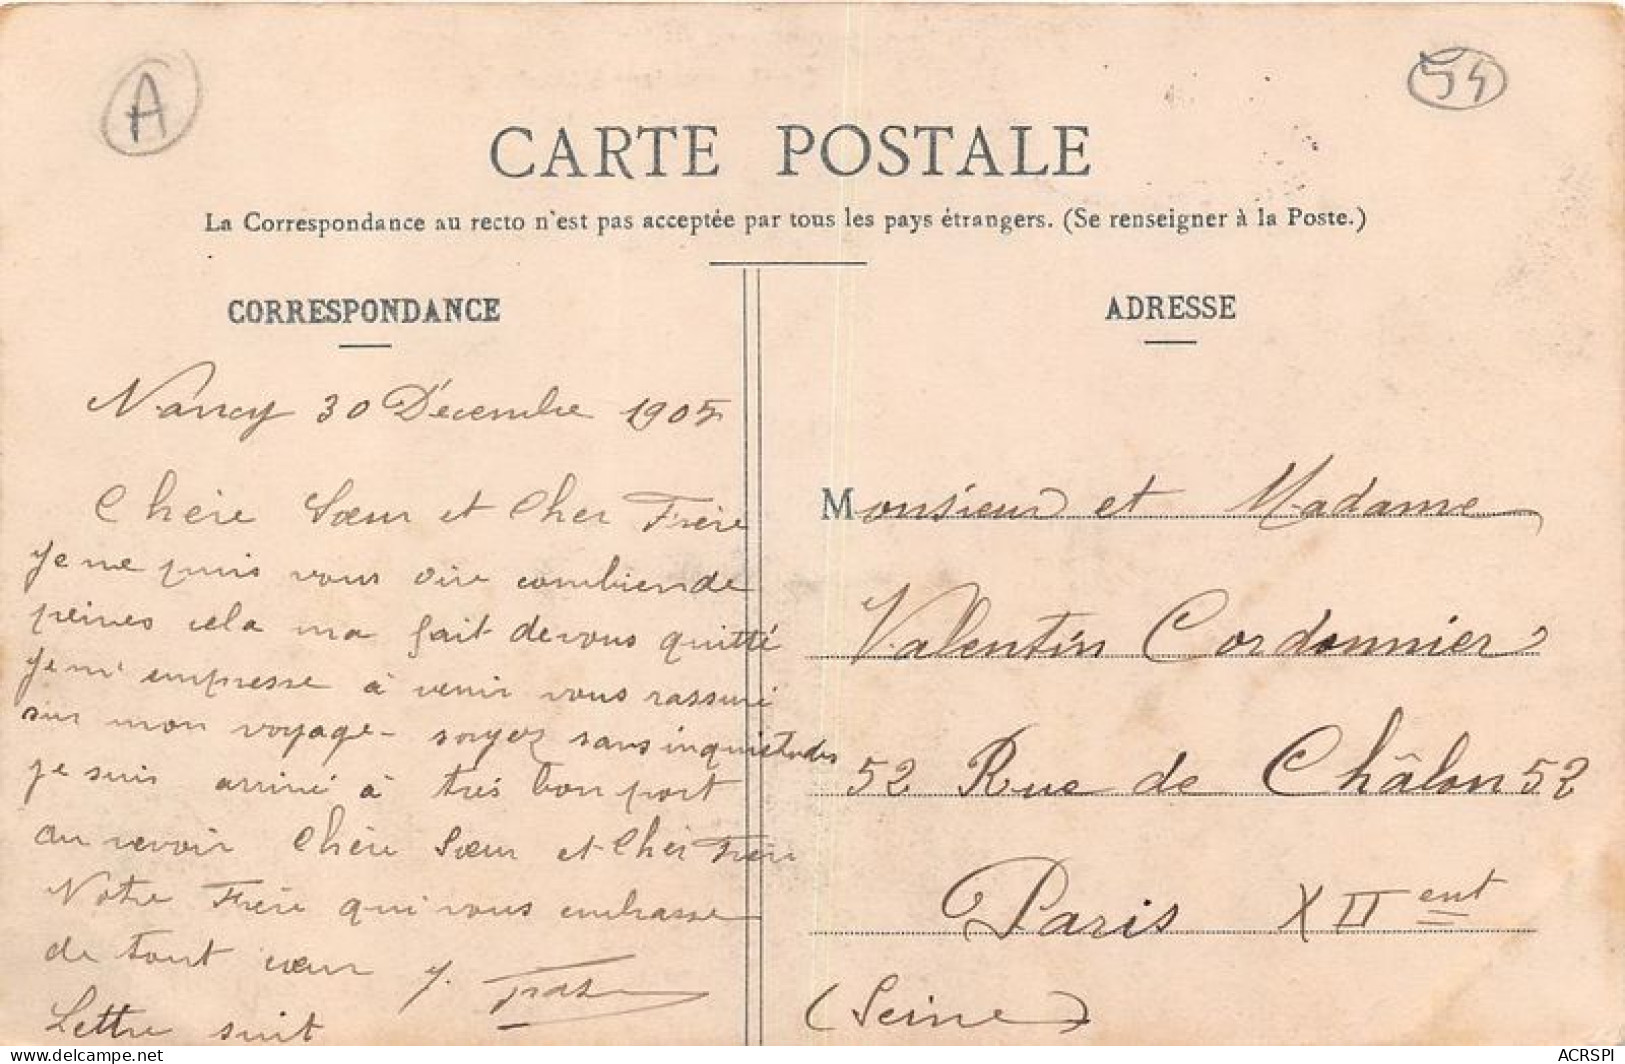 A
54
CARTE POSTALE
La Correspondance au recto n'est pas acceptée par tous les pays étrangers. (Se renseigner à la Poste.)
CORRESPONDANCE
Nancy 30 Décembre 1905
Chère Sœur et Cher Frère
Je ne puis vous dire combien de
peines cela ma fait de vous quitté
Je m'empresse à venir vous rassuré
sur mon voyage - soyez sans inquietudes
je suis arrivé à très bon port
au revoir Chère Sœur et Cher Frère
Votre Frère qui vous embrasse
de tout cœur J.
Lettre suit
ADRESSE
Monsieur et Madame
Valentin Cordonnier
52 Rue de Châlon 52
Paris XII ent
(Seine)
delcampe.net
ACRSPI